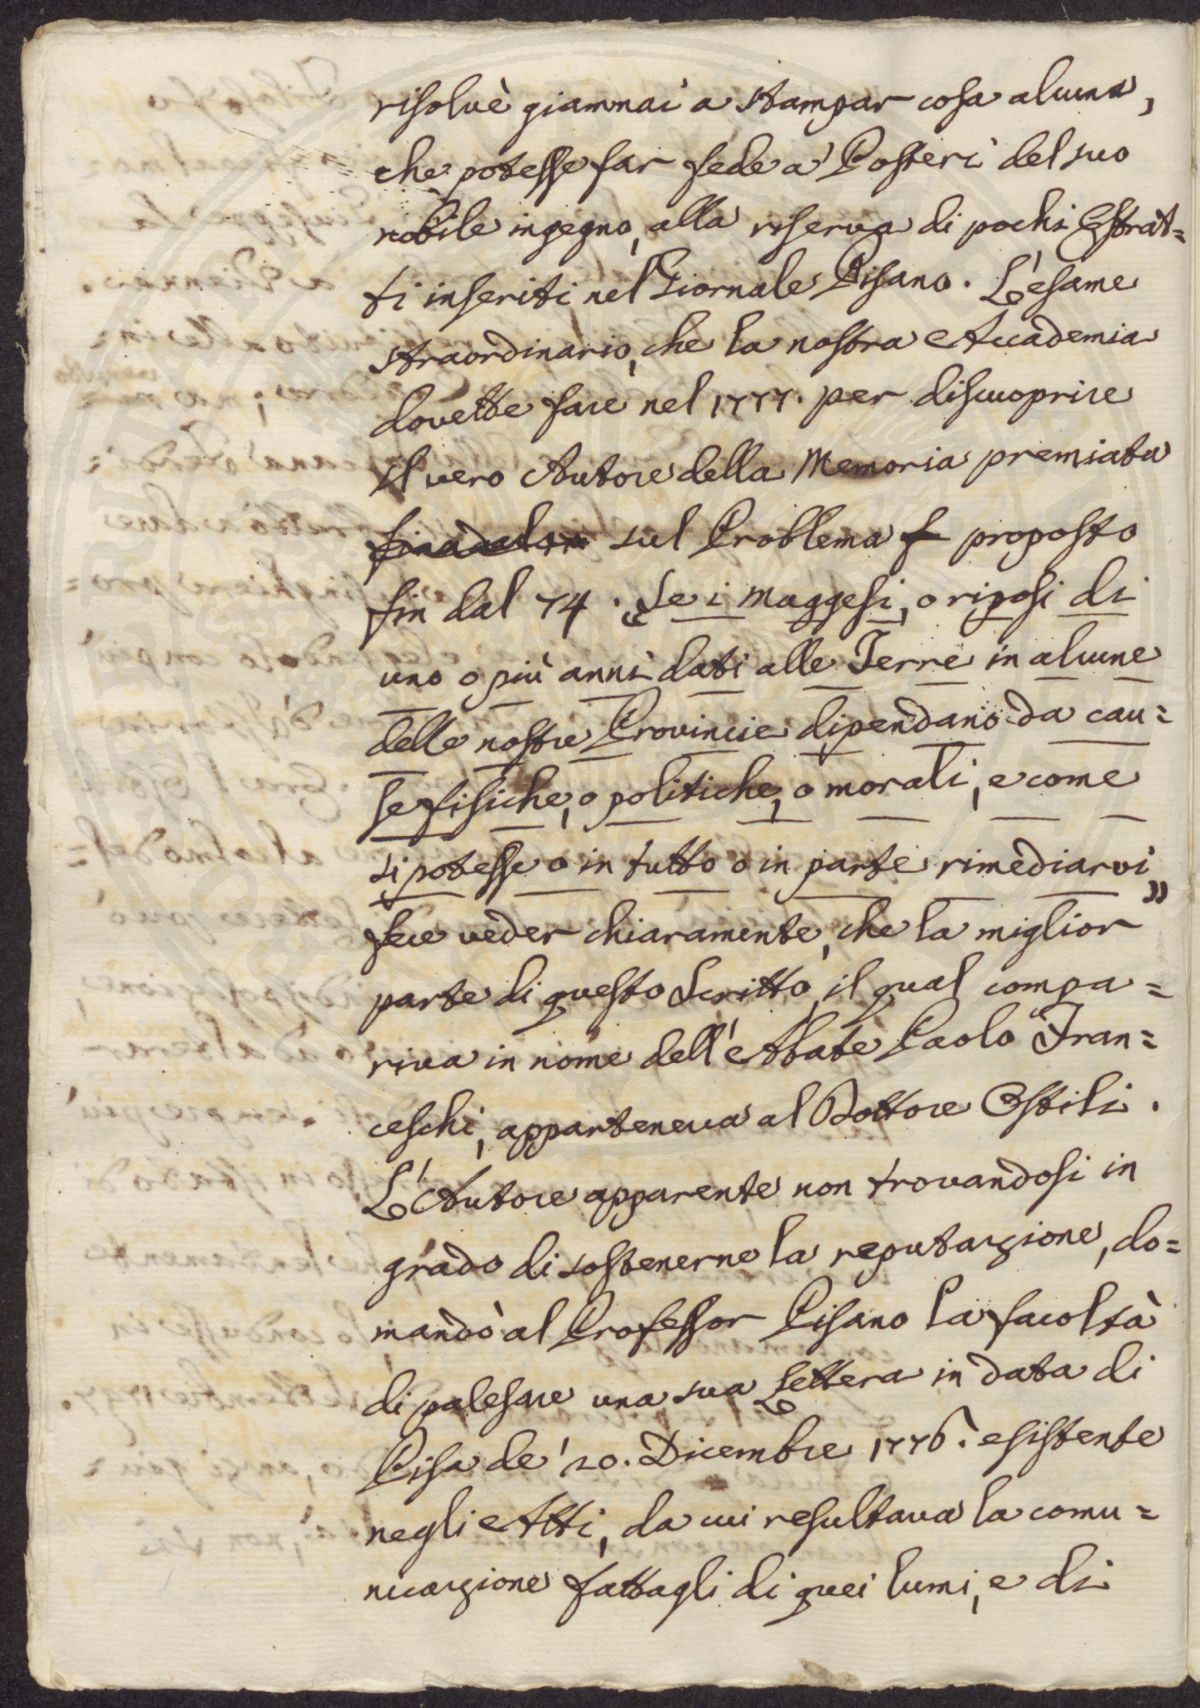 risolvè giammai a stampar cosa alcuna,
che potesse far fede a' Posteri del suo
nobile ingegno, alla riserva di pochi Estrat=
ti inseriti nel Giornale Pisano. L'esame
straordinario, che la nostra Accademia
dovette fare nel 1777. per discuoprire
il vero Autore della Memoria premiata
sul Problema proposto
fin dal 74. „Se i Maggesi, o riposi di
uno o più anni dati alle Terre in alcune
delle nostre Provincie dipendano da cau=
se fisiche, o politiche, o morali, e come
si potesse o in tutto o in parte rimediarvi„
fece veder chiaramente, che la miglior
parte di questo Scritto, il qual compa=
riva in nome dell'Abate Paolo Fran=
ceschi, apparteneva al Dottore Ostili.
L'Autore apparente non trovandosi in
grado di sostenerne la reputazione, do=
mandò al Professor Pisano la facoltà
di palesare una sua Lettera in data di
Pisa de' 20. Dicembre 1776. esistente
negli Atti, da cui resultava la comu=
nicazione fattagli di quei lumi, e di